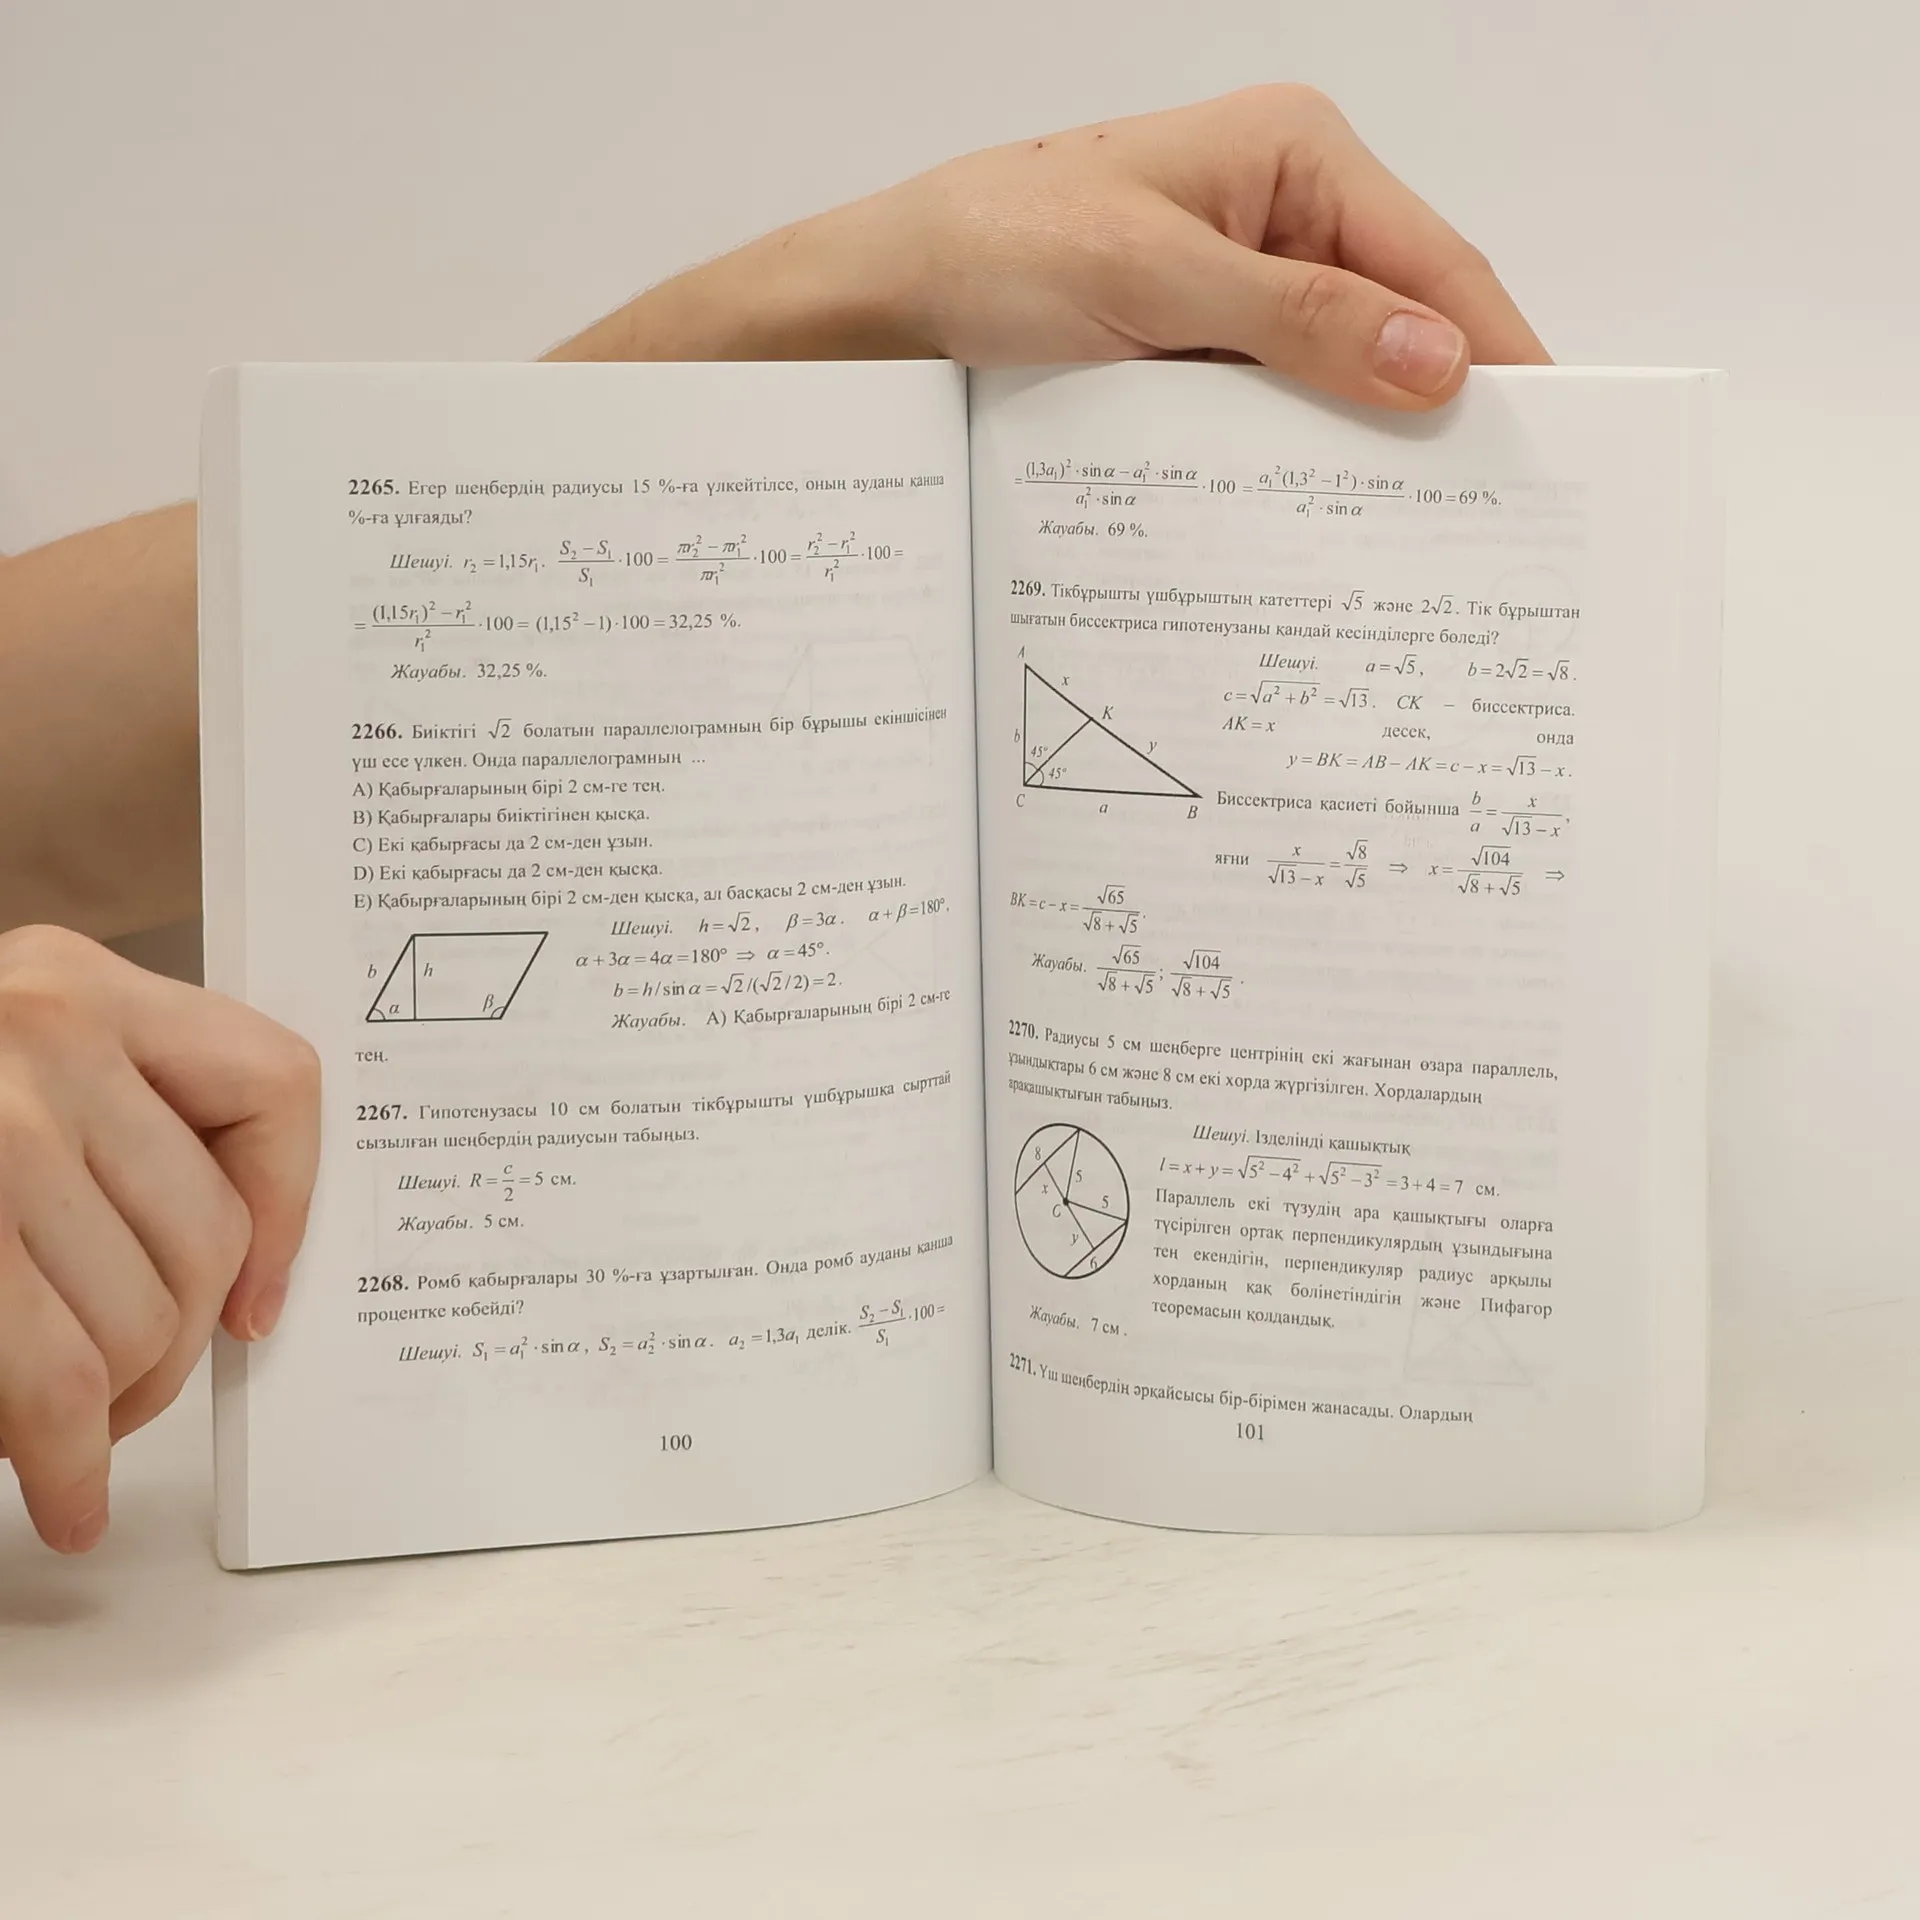 2265. Егер шеңбердің радиусы 15 %-ға үлкейтілсе, оның ауданы қанша
%-ға ұлғаяды?
Шешуі. r₂ = 1,15r₁. (S₂ − S₁)/S₁ · 100 = (πr₂² − πr₁²)/(πr₁²) · 100 = (r₂² − r₁²)/r₁² · 100 =
= ((1,15r₁)² − r₁²)/r₁² · 100 = (1,15² − 1) · 100 = 32,25 %.
Жауабы. 32,25 %.
2266. Биіктігі √2 болатын параллелограмның бір бұрышы екіншісінен
үш есе үлкен. Онда параллелограмның ...
A) Қабырғаларының бірі 2 см-ге тең.
B) Қабырғалары биіктігінен қысқа.
C) Екі қабырғасы да 2 см-ден ұзын.
D) Екі қабырғасы да 2 см-ден қысқа.
E) Қабырғаларының бірі 2 см-ден қысқа, ал басқасы 2 см-ден ұзын.
b h α β
Шешуі. h = √2, β = 3α. α + β = 180°,
α + 3α = 4α = 180° ⇒ α = 45°.
b = h / sin α = √2 /(√2 / 2) = 2.
Жауабы. A) Қабырғаларының бірі 2 см-ге
тең.
2267. Гипотенузасы 10 см болатын тікбұрышты үшбұрышқа сырттай
сызылған шеңбердің радиусын табыңыз.
Шешуі. R = c/2 = 5 см.
Жауабы. 5 см.
2268. Ромб қабырғалары 30 %-ға ұзартылған. Онда ромб ауданы қанша
процентке көбейді?
Шешуі. S₁ = a₁² · sin α, S₂ = a₂² · sin α. a₂ = 1,3a₁ делік. (S₂ − S₁)/S₁ · 100 =
100
= ((1,3a₁)² · sin α − a₁² · sin α)/(a₁² · sin α) · 100 = (a₁²(1,3² − 1²) · sin α)/(a₁² · sin α) · 100 = 69 %.
Жауабы. 69 %.
2269. Тікбұрышты үшбұрыштың катеттері √5 және 2√2. Тік бұрыштан
шығатын биссектриса гипотенузаны қандай кесінділерге бөледі?
A x K y b 45° 45° C a B
Шешуі. a = √5, b = 2√2 = √8.
c = √(a² + b²) = √13. CK – биссектриса.
AK = x десек, онда
y = BK = AB − AK = c − x = √13 − x.
Биссектриса қасиеті бойынша b/a = x/(√13 − x),
яғни x/(√13 − x) = √8/√5 ⇒ x = √104/(√8 + √5) ⇒
BK = c − x = √65/(√8 + √5).
Жауабы. √65/(√8 + √5); √104/(√8 + √5).
2270. Радиусы 5 см шеңберге центрінің екі жағынан өзара параллель,
ұзындықтары 6 см және 8 см екі хорда жүргізілген. Хордалардың
арақашықтығын табыңыз.
8 5 x C 5 y 6
Шешуі. Ізделінді қашықтық
l = x + y = √(5² − 4²) + √(5² − 3²) = 3 + 4 = 7 см.
Параллель екі түзудің ара қашықтығы оларға
түсірілген ортақ перпендикулярдың ұзындығына
тең екендігін, перпендикуляр радиус арқылы
хорданың қақ бөлінетіндігін және Пифагор
теоремасын қолдандық.
Жауабы. 7 см.
2271. Үш шеңбердің әрқайсысы бір-бірімен жанасады. Олардың
101